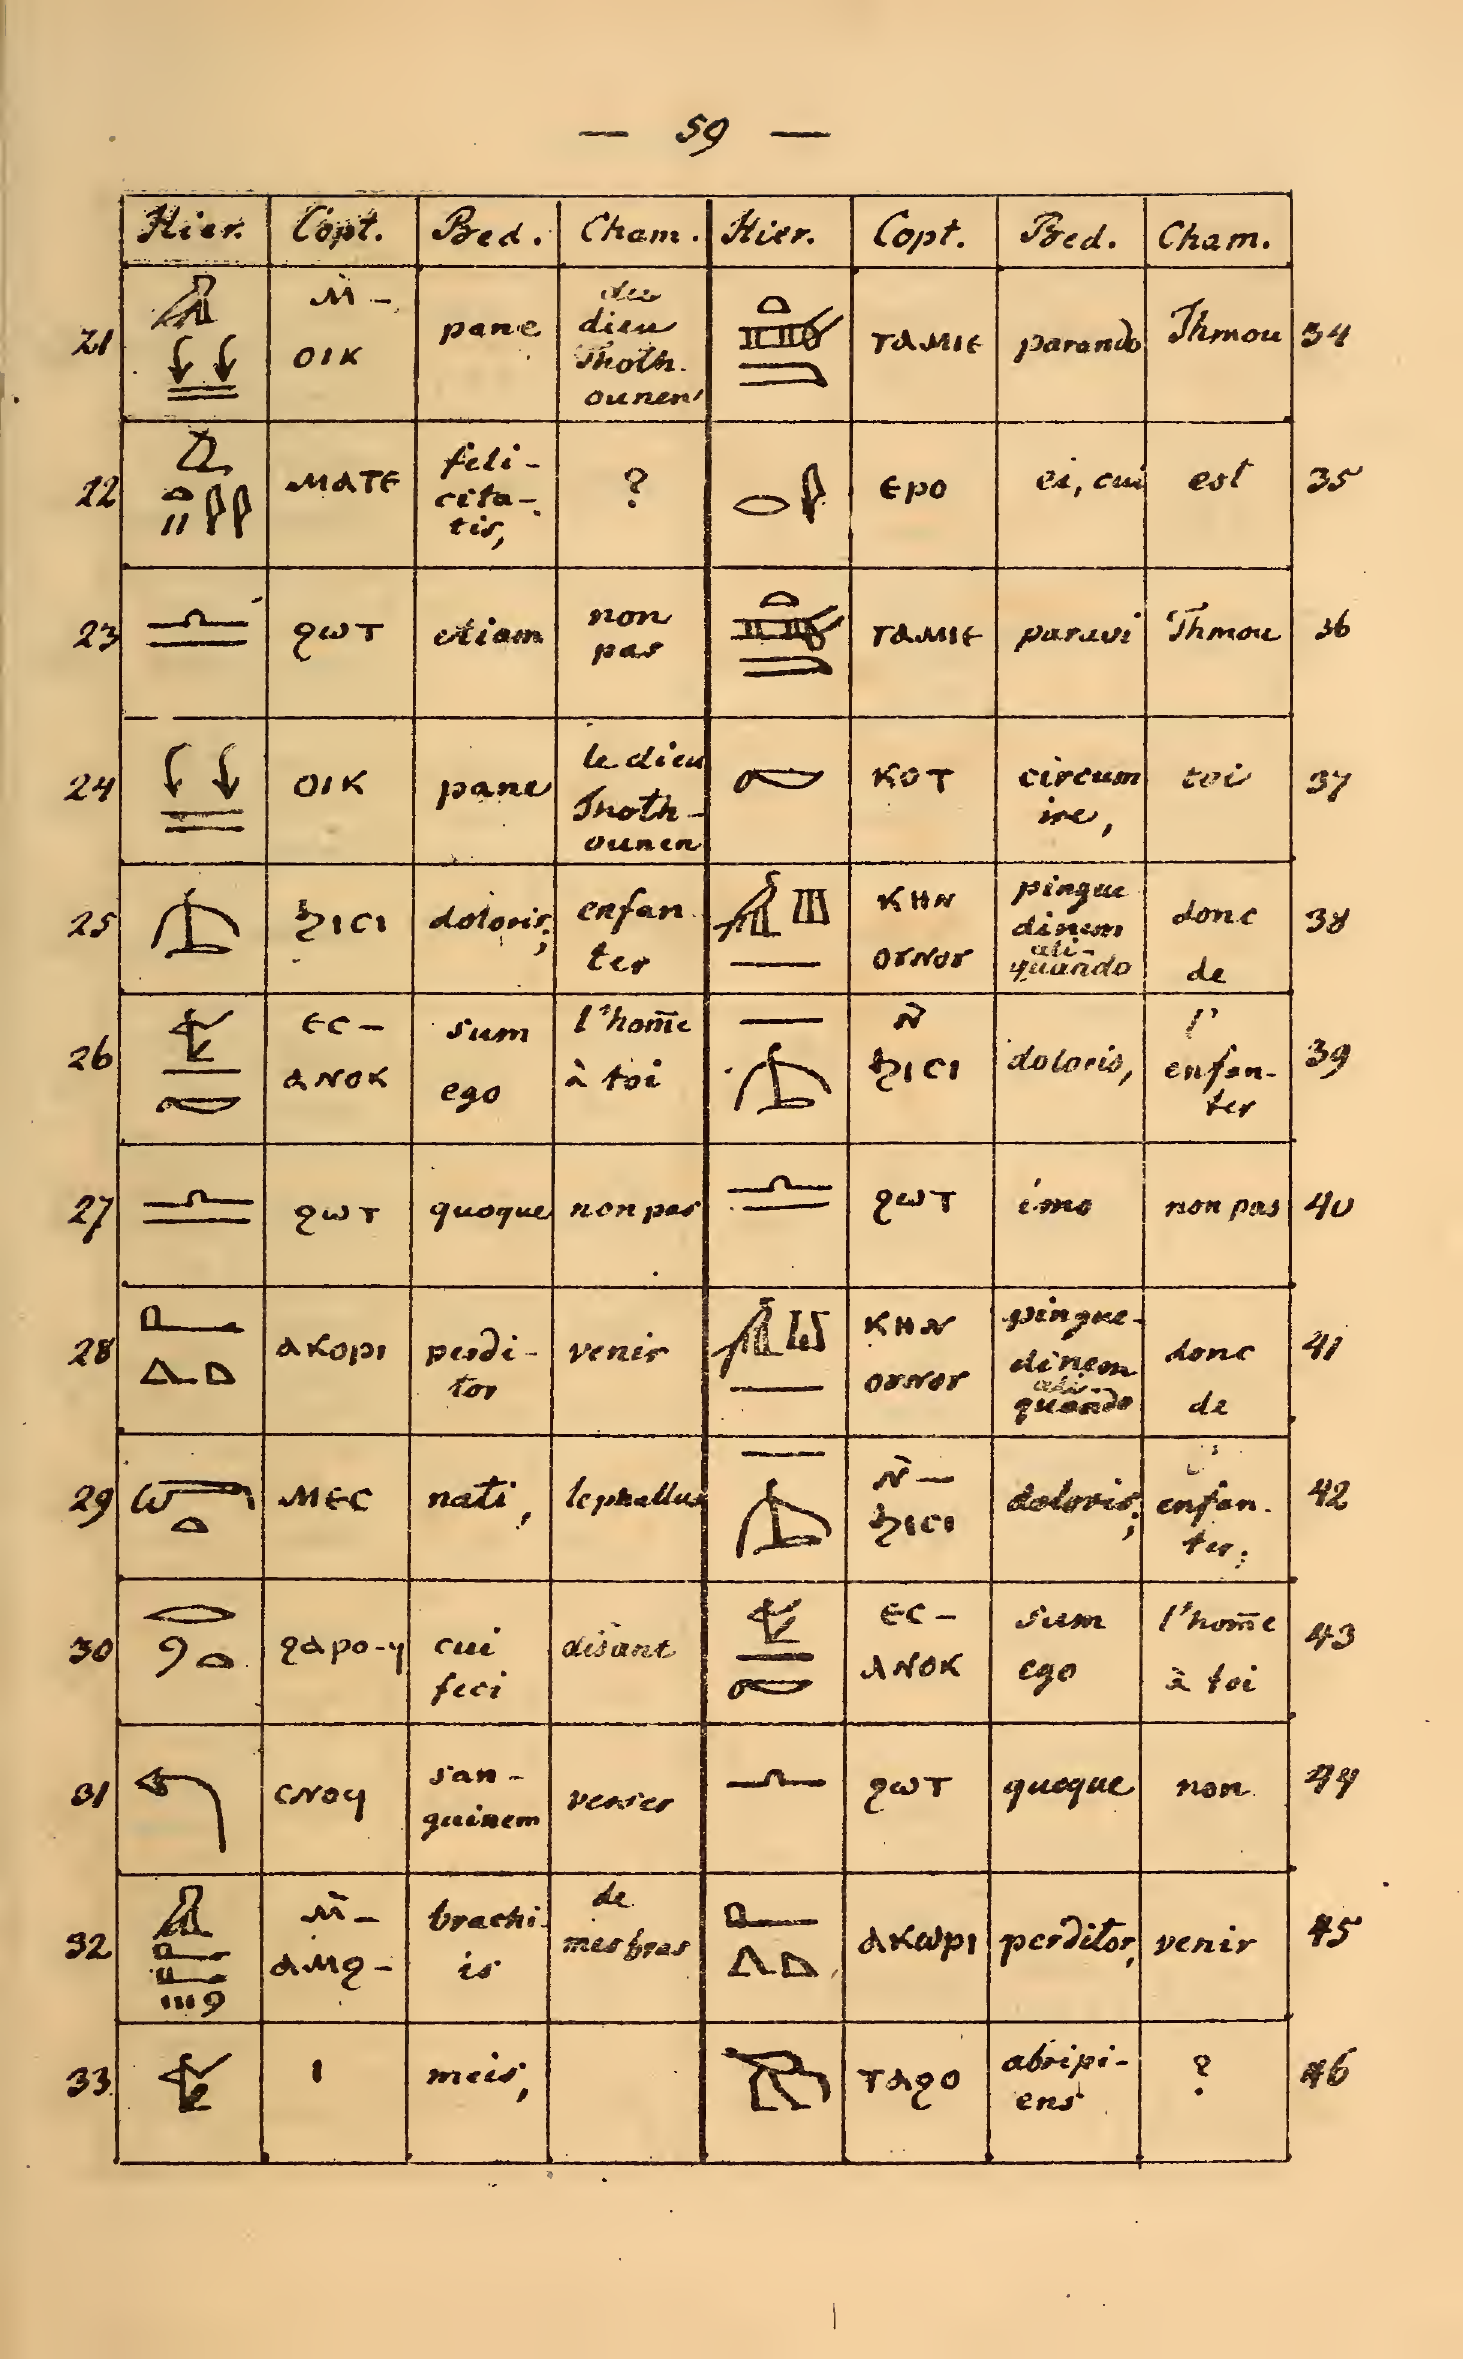 — 59 —
Hier. Copt. Bed. Cham. Hier. Copt. Bed. Cham.
21 ⲙ̄- ⲟⲓⲕ pane du dieu Thoth. ounen ⲧⲁⲙⲓⲉ parando Thmou 34
22 ⲙⲁⲧⲉ feli-cita-tis, ? ⲉⲣⲟ ei, cui est 35
23 ϩⲱⲧ etiam non pas ⲧⲁⲙⲓⲉ paravi Thmou 36
24 ⲟⲓⲕ pane le dieu Thoth-ounen ⲕⲟⲧ circum ire, toi 37
25 ϧⲓⲥⲓ doloris; enfan ter ⲕⲏⲛ ⲟⲩⲛⲟⲩ pingue dinem ali-quando donc de 38
26 ⲉⲥ- ⲁⲛⲟⲕ sum ego l'hom̄e à toi ⲛ̄ ϧⲓⲥⲓ doloris, l' enfan-ter 39
27 ϩⲱⲧ quoque non pas ϩⲱⲧ imo non pas 40
28 ⲁⲕⲟⲣⲓ perdi-tor venir ⲕⲏⲛ ⲟⲩⲛⲟⲩ pingue-dinem ali-quando donc de 41
29 ⲙⲉⲥ nati, le phallus ⲛ̄- ϧⲓⲥⲓ doloris; enfan. ter; 42
30 ϩⲁⲣⲟ-ϥ cui feci disant ⲉⲥ- ⲁⲛⲟⲕ sum ego l'hom̄e à toi 43
31 ⲥⲛⲟϥ san-guinem verser ϩⲱⲧ quoque non 44
32 ⲙ̄- ⲁⲙϩ- brachi-is de mes bras ⲁⲕⲱⲣⲓ perditor, venir 45
33 ⲓ meis, ⲧⲁϩⲟ abripi-ens ? 46